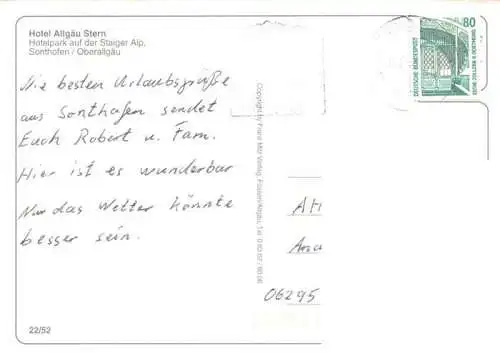 Hotel Allgäu Stern
Hotelpark auf der Staiger Alp,
Sonthofen / Oberallgäu
Die besten Urlaubsgrüße
aus Sonthofen sendet
Euch Robert u. Fam.
Hier ist es wunderbar
Nur das Wetter könnte
besser sein.
22/52
Copyright by Franz Milz Verlag, Füssen/Allgäu,
80
DEUTSCHE BUNDESPOST
ZECHE ZOLLERN II · DORTMUND
06295